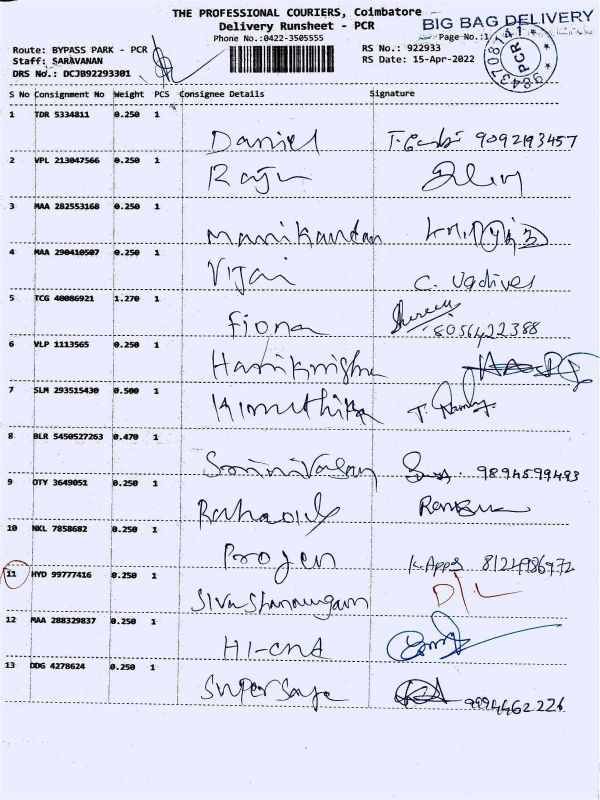 THE PROFESSIONAL COURIERS, Coimbatore
Delivery Runsheet - PCR
BIG BAG DELIVERY
Phone No.:0422-3505555
Page No.:1
Route: BYPASS PARK - PCR
RS No.: 922933
Staff: SARAVANAN
RS Date: 15-Apr-2022
DRS No.: DCJB92293301
9843708141
PCR
S No Consignment No Weight PCS Consignee Details Signature
1 TDR 5334811 0.250 1
Daniel 9092193457
2 VPL 213047566 0.250 1
Raju
3 MAA 282553168 0.250 1
Manikandan
4 MAA 290410507 0.250 1
Vijai C.
5 TCG 40086921 1.270 1
Fiona 8056422388
6 VLP 1113565 0.250 1
Harikrishna
7 SLM 293515430 0.500 1
Kiruthika T.
8 BLR 5450527263 0.470 1
Srinivasan 9894599493
9 OTY 3649051 0.250 1
10 NKL 7858682 0.250 1
Projen 8124986972
11 HYD 99777416 0.250 1
Sivashanmugam D/L
12 MAA 288329837 0.250 1
HI-CNA
13 DDG 4278624 0.250 1
9994462226